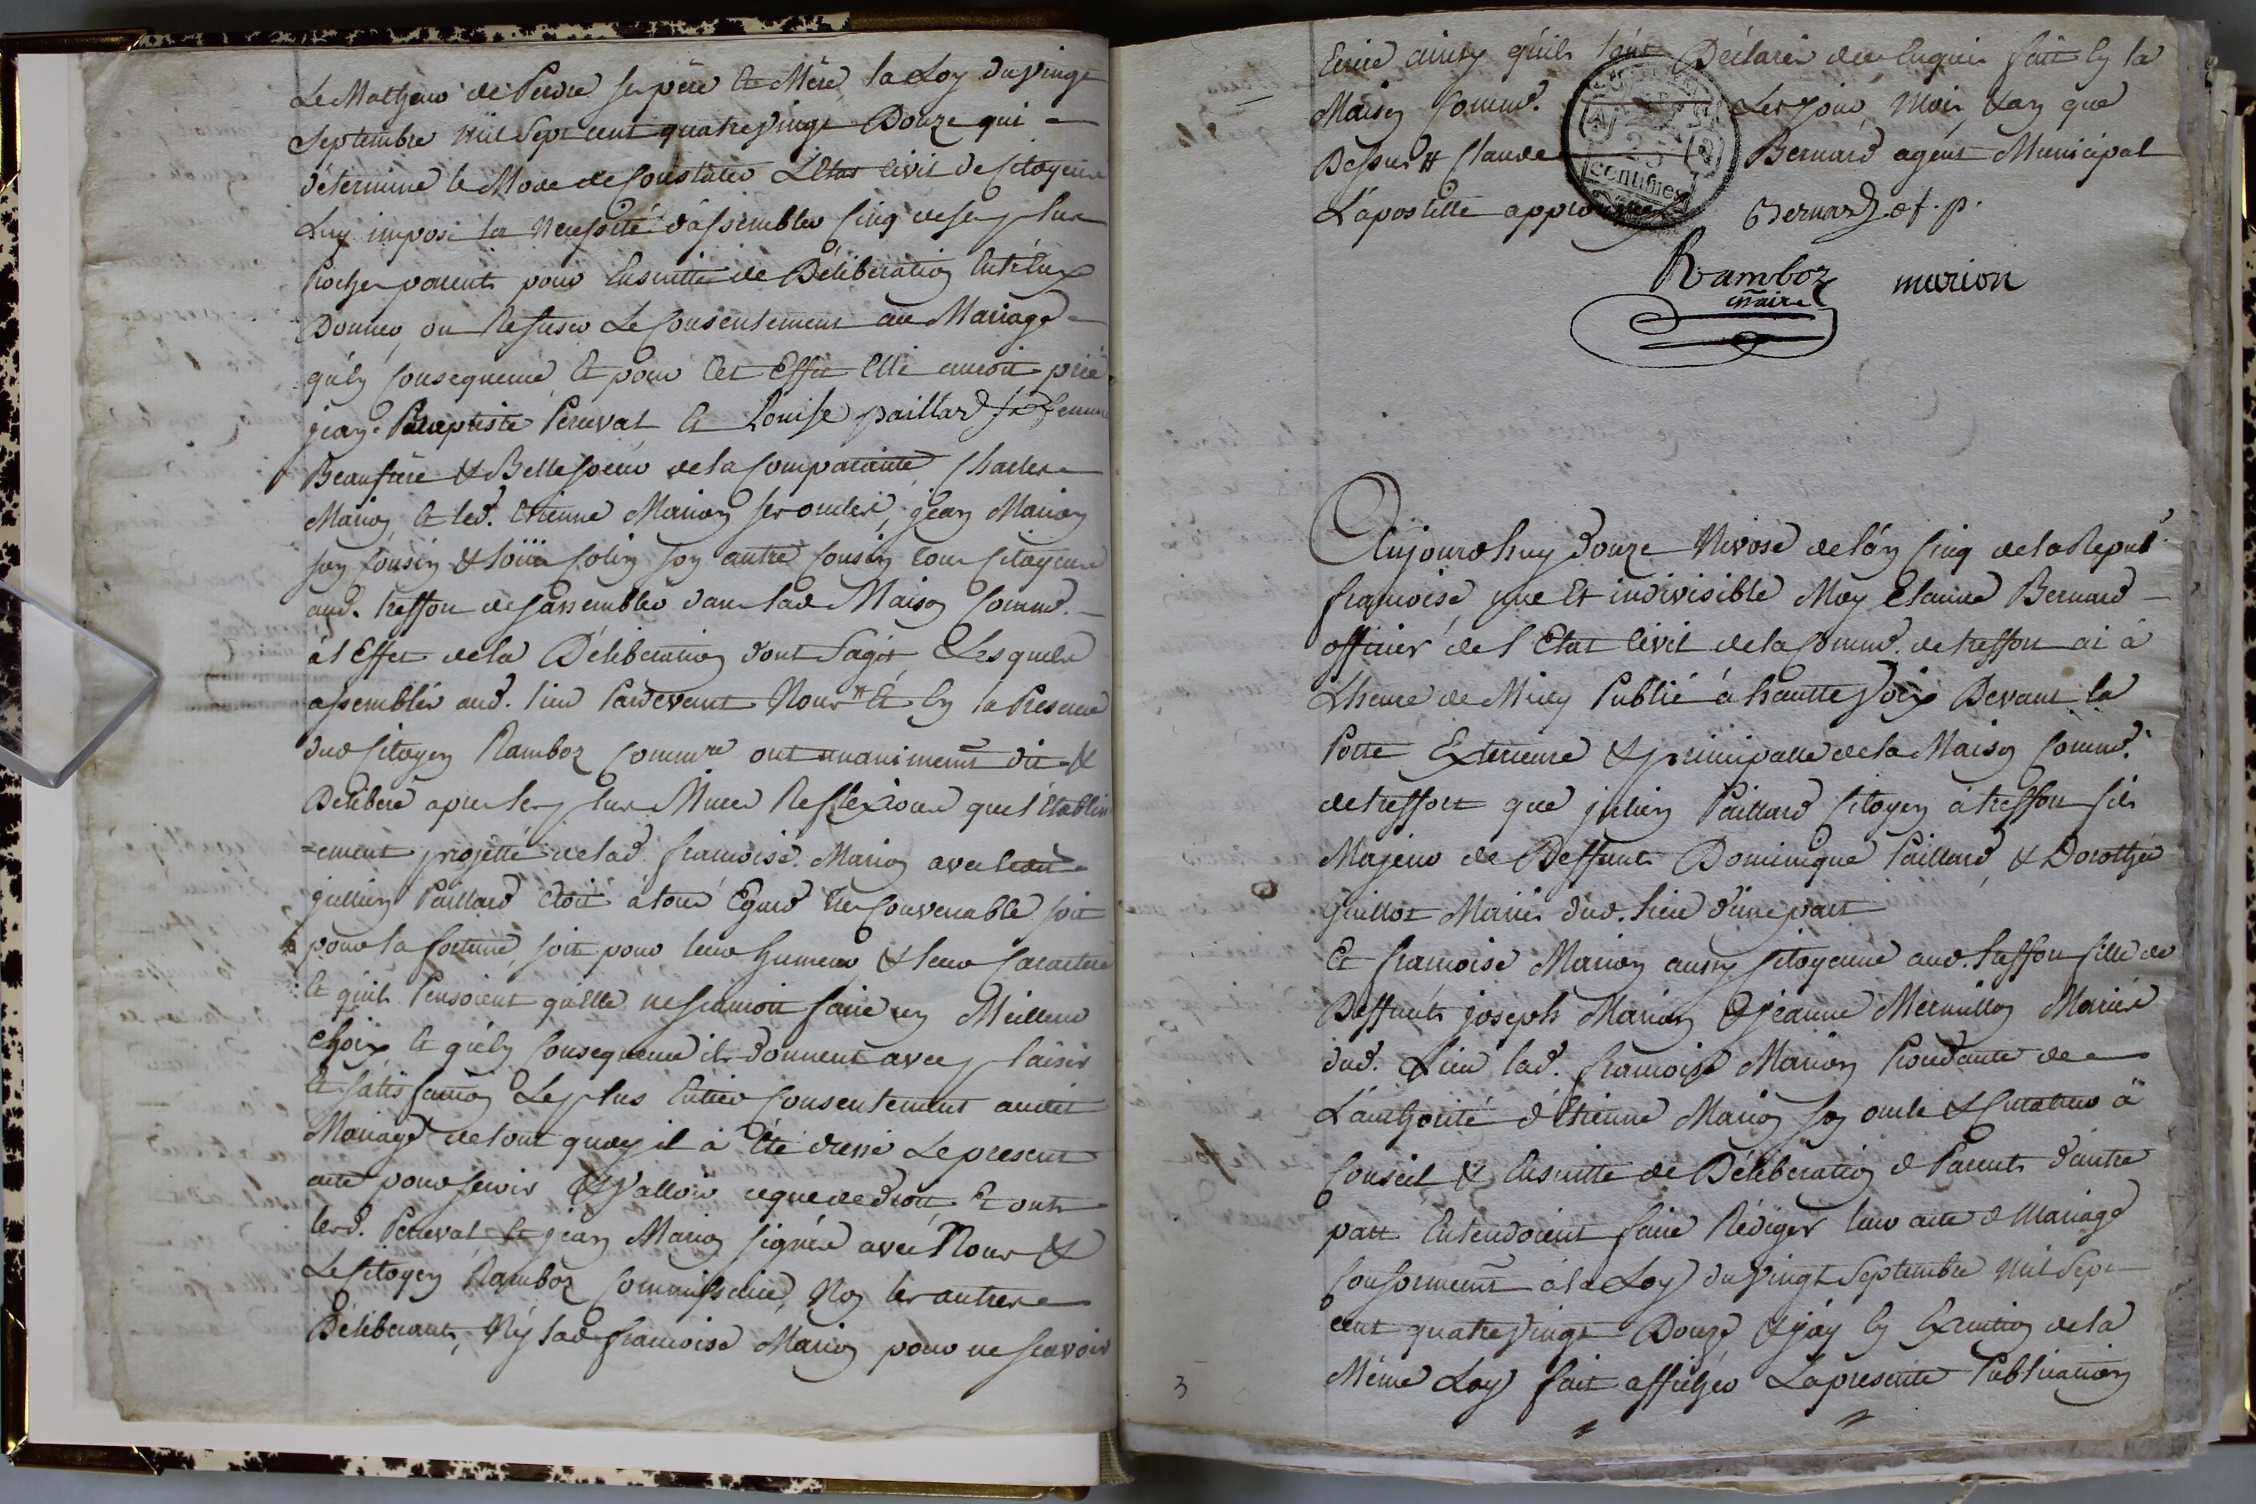 Le Malheur de Perdre ses père et Mère, la Loy du vingt
Septembre mil sept cent quatre vingt Douze qui
détermine le Mode de Constater L'Etat civil des Citoyens
Luy impose la Necessité d'assembler Cinq de ses plus
Proches parents pour Ensuitte de Déliberation Entr'Eux
Donner, ou Refuser Le Consentement au Mariage
qu'En Consequence Et pour Cet Effet Elle auroit prié
jean Baptiste Perceval Et Louise paillard sa femme
Beaufrère & Belle soeur de la Comparante, Charles
Marion, Et led. Etienne Marion ses oncles, jean Marion
son Cousin & Colin son autre Cousin tous Citoyens
aud. treffort de s'assembler dans lad. Maison Comme.
à l'Effet de la Déliberation dont s'agit, Lesquels
assemblés aud. lieu Pardevant Nous # Et En la Présence
dud Citoyen Ramboz Commre ont unanimemt dit &
Déliberé apres les plus Mures Reflexions que l'Etablis
=sement projetté de lad. francoise Marion avec ledit
jullien Paillard étoit à tous Egard très Convenable soit
pour la fortune, soit pour leur humeur & leur Caractere
Et qu'ils Pensoient qu'Elle ne scauroit faire un Meilleur
choix Et qu'En Consequence ils donnent avec plaisir
Et satisfaction Le plus Entier Consentement audit
Mariage, de tout quoy il à Eté dressé Le present
acte pour servir & Valloir ce que de droit, Et ont
lesd. Perceval, Et jean Marion signés avec Nous &
Le Citoyen Ramboz Commissaire, Non les autres
Délibérants, Ny lad. francoise Marion pour ne scavoir
Ecrire ainsy qu'ils l'ont Déclarés de ce Enquis fait En la
Maison Comme. Les jour, Mois, & an que
Dessus # Claude Bernard agent Municipal
L'apostille approuvée Bernard. of. p.
25
centimes
Ramboz marion
Aujourdhuy Douze Nivose de l'an Cinq de la Repub.
francoise, une Et indivisible Moy Claude Bernard
officier de l'Etat Civil de la Comme. de treffort ai à
L'heure de Midy Publié à hautte Voix Devant la
Porte Exterieure & principalle de la Maison Comme.
de treffort que julien Paillard Citoyen à treffort fils
Majeur de Deffunts Dominique Paillard, & Dorothée
Guillot Mariés dud. lieu d'une part
Et francoise Marion aussy Citoyenne aud. treffort fille de
Deffunts joseph Marion & jeanne Mermillon Mariés
dud. Lieu lad. francoise Marion Procedante de
L'authorité d'Etienne Marion son oncle & Curateur à
Conseil & Ensuitte de Déliberation de Parents d'autre
part Entendoient faire Rédiger leur acte de Mariage
Conformemt à la Loy du vingt Septembre Mil Sept
cent quatre vingt Douze, & j'ay En Execution de la
Même Loy fait afficher La presente Publication
3